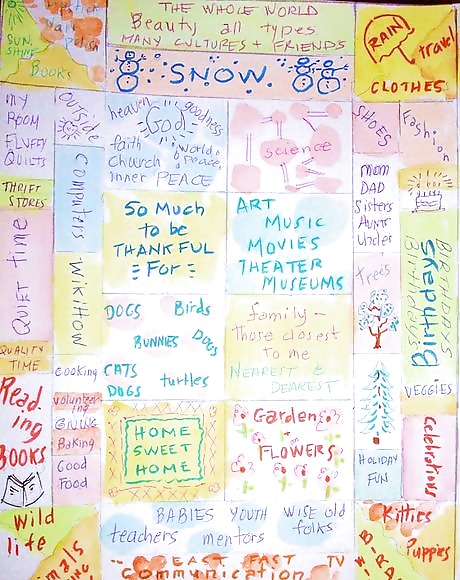 Lipstick
Nail
Polish
SUN
SHINE
Books
THE WHOLE WORLD
Beauty all types
MANY CULTURES + FRIENDS
SNOW
RAIN
Travel
CLOTHES
MY
ROOM
FLUFFY
QUILTS
THRIFT
STORES
QUIET TIME
QUALITY
TIME
Read
ing
BOOKS
Outside
Computers
WIKIHOW
COOKING
Volunteer
ing
GIVING
Baking
Good
Food
heaven
goodness
God
faith
Church
world
peace,
inner PEACE
science
SO MUCH
to be
THANKFUL
FOR
ART
MUSIC
MOVIES
THEATER
MUSEUMS
DOGS
Birds
BUNNIES
DOGS
CATS
DOGS
turtles
family -
those closest
to me
NEAREST &
DEAREST
HOME
SWEET
HOME
Gardens
FLOWERS
SHOES
Fashion
MOM
DAD
Sisters
AUNTS
Uncles
trees
Birthdays
VEGGIES
HOLIDAY
FUN
Celebrations
Wild
life
BABIES YOUTH WISE old
folks
teachers mentors
Kitties
Puppies
EAST FAST TV
Communication